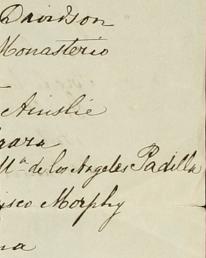 Davidson
Monasterio
Ainslie
Mª de los Angeles Padilla
isco Morphy
na